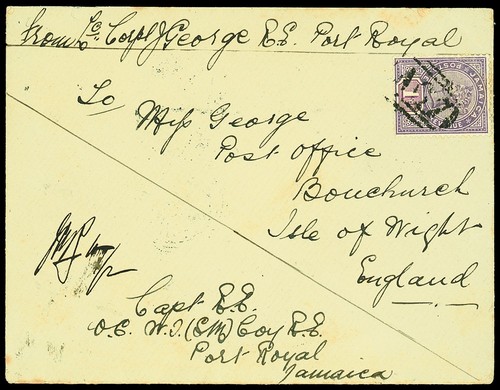 from L/Cpl J George R.E. Port Royal
To
Miss George
Post office
Bonchurch
Isle of Wight
England
JAMAICA
POSTAGE
REVENUE
1
Capt R.E.
O.C. W.I. (S.M.) Coy R.E.
Port Royal
Jamaica